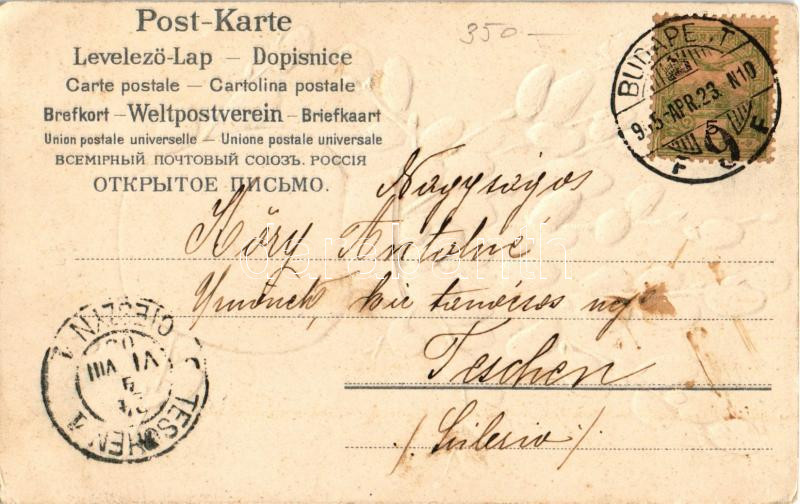 Post-Karte
Levelező-Lap — Dopisnice
Carte postale — Cartolina postale
Brefkort — Weltpostverein — Briefkaart
Union postale universelle — Unione postale universale
ВСЕМІРНЫЙ ПОЧТОВЫЙ СОЮЗЪ. РОССІЯ
ОТКРЫТОЕ ПИСЬМО.
350—
BUDAPE T
APR. 23. N10
5
9
F F
Nagyságos
Kőry Antalné
Teschen
/: Silesia /
darabanth
CIESZYN 1
VI VIII
TESCHEN 1